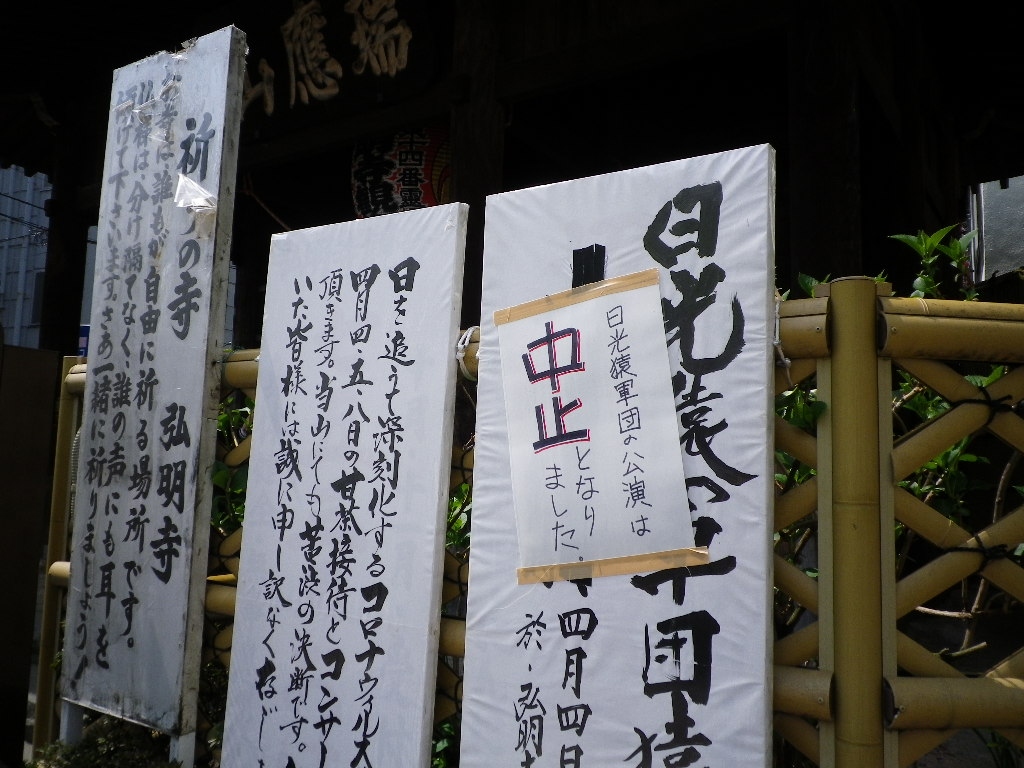 瑞應山
十四番霊
祈りの寺 弘明寺
お寺は誰もが自由に祈る場所です。
仏様は分け隔てなく、誰の声にも耳を
傾けて下さいます。さあ一緒に祈りましょう!
日を追って深刻化するコロナウィルス
四月四、五、八日の甘茶接待とコンサー
頂きます。当山にても苦渋の決断です。
いた皆様には誠に申し訳なく存じ
日光猿軍団
四月四日
於・弘明
日光猿軍団の公演は
中止となり
ました。